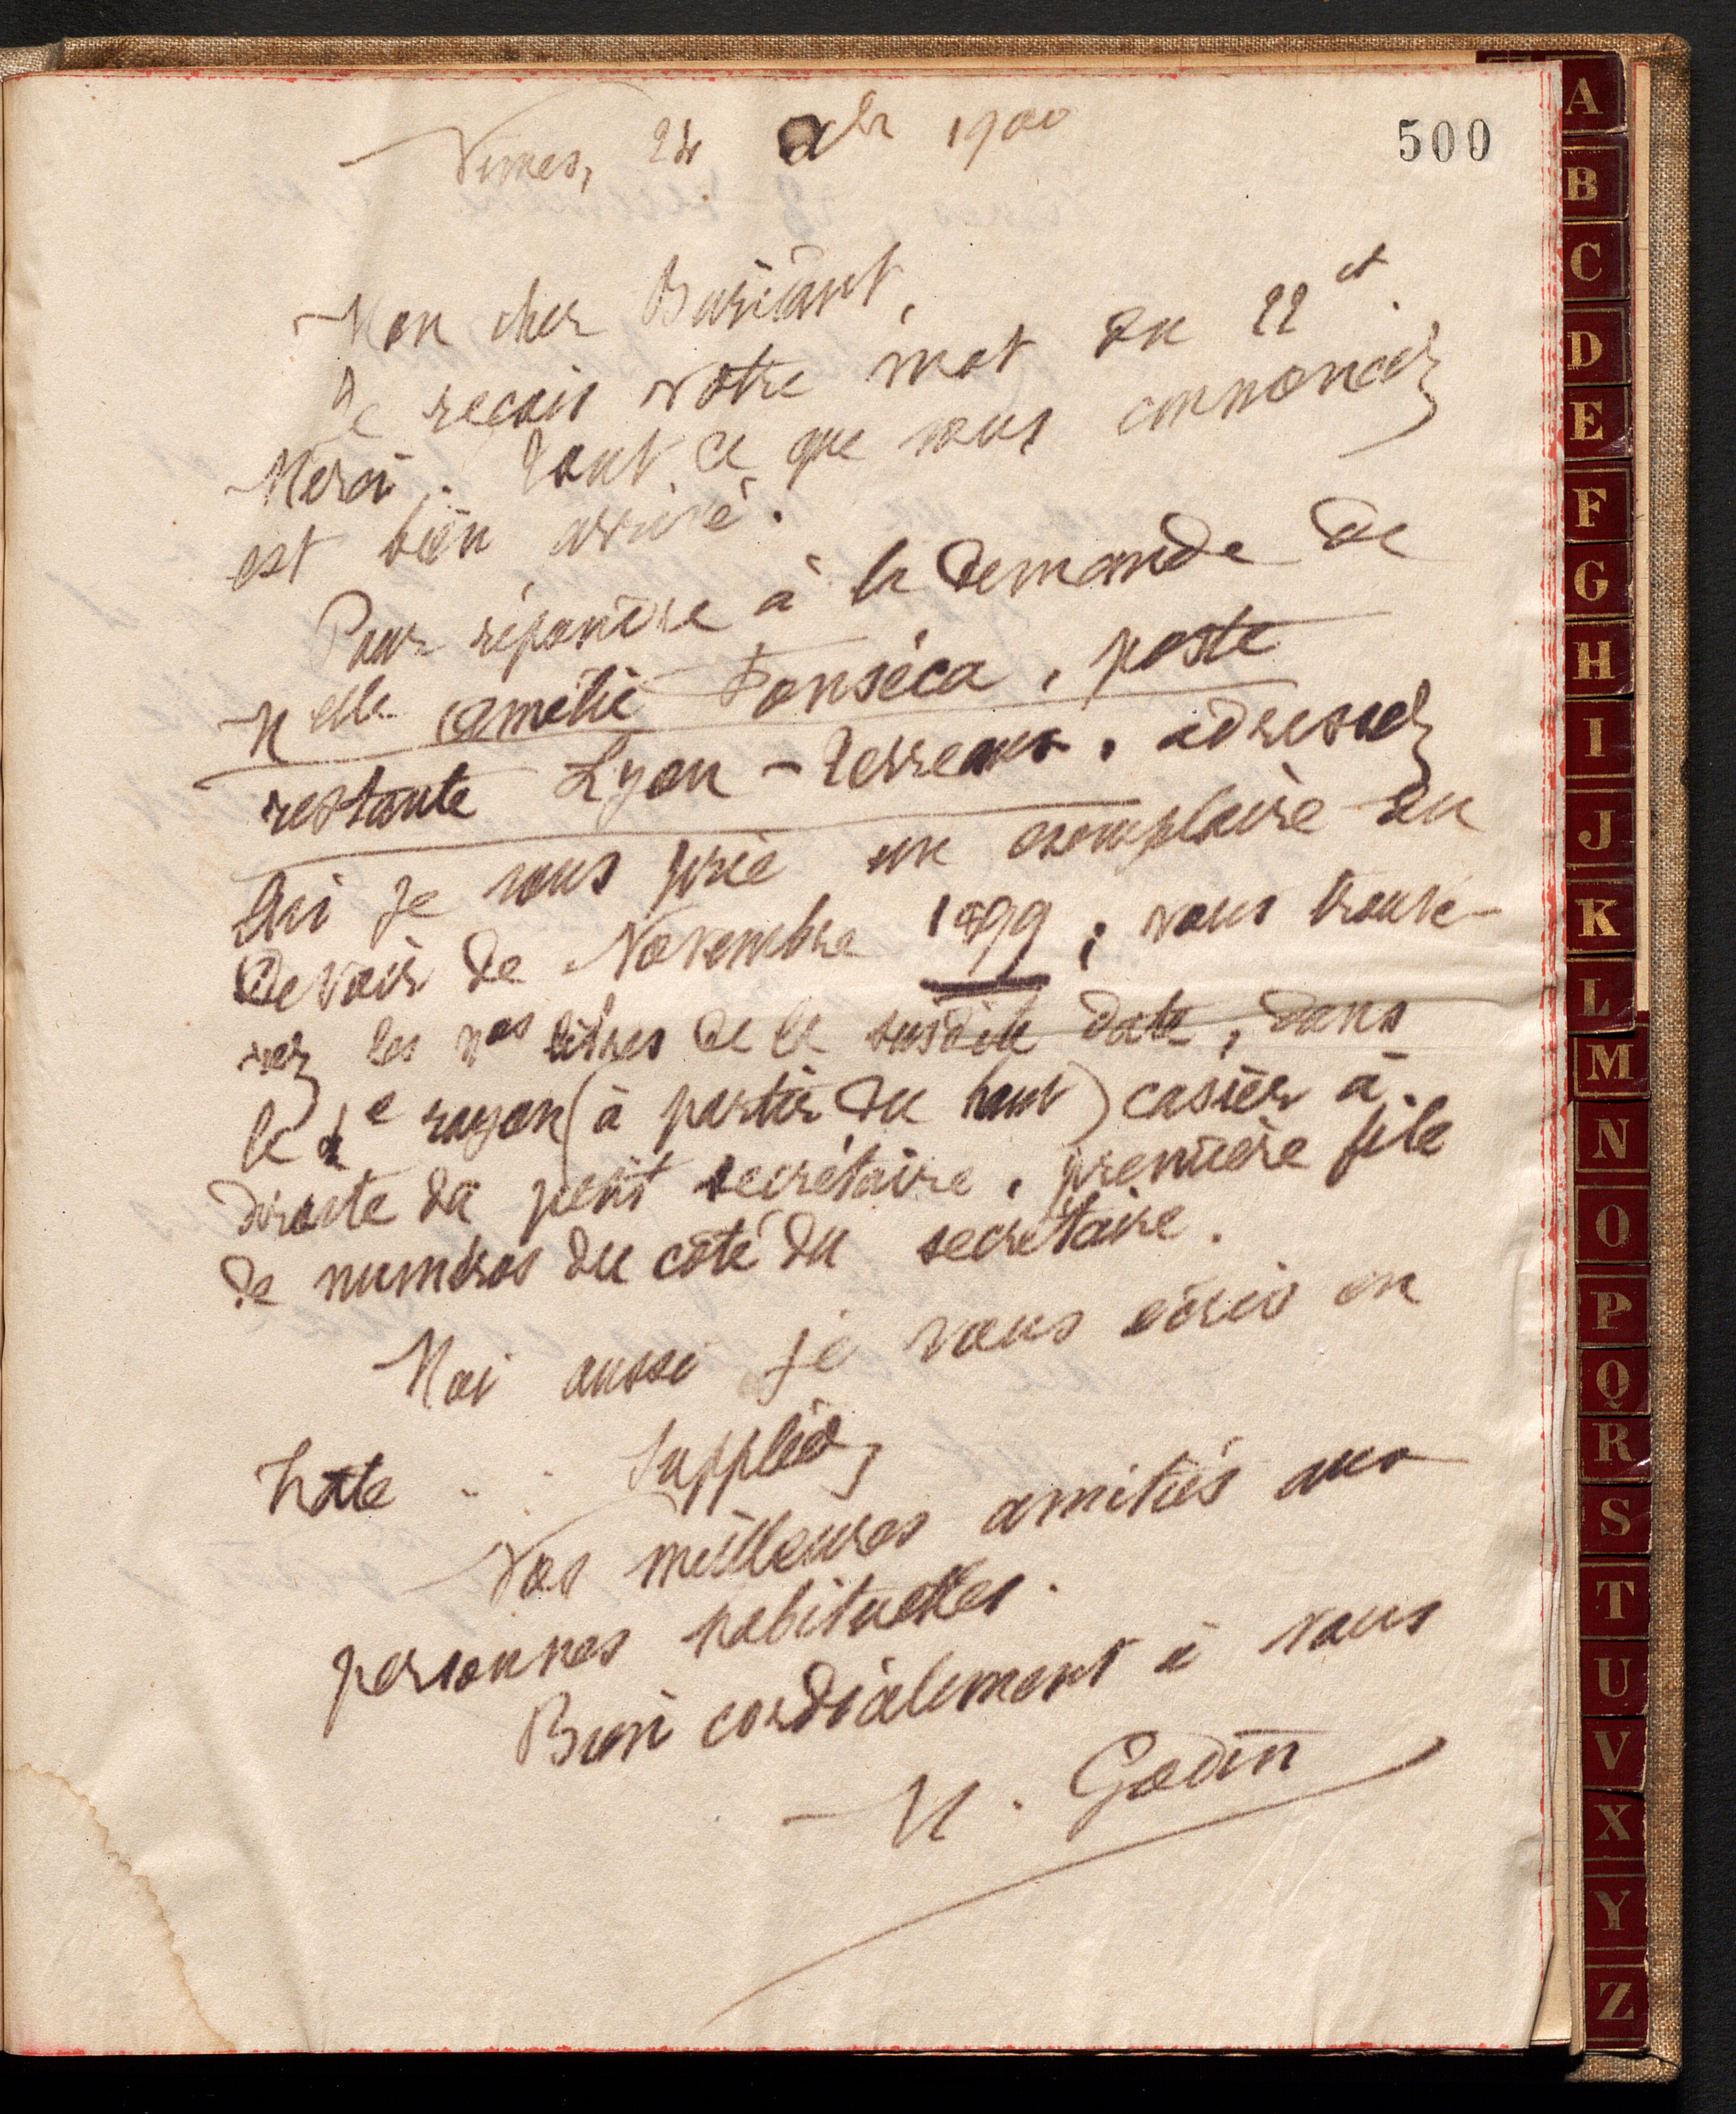 500
Nimes, 24 Xbr 1900
Mon cher Buriant,
Je reçois votre mot du 22 ct.
Merci. Tout ce que vous annoncez
est bien arrivé.
Pour répondre à la demande de
Melle Amélie Fonséca, poste
restante Lyon-Terreaux, adressez
lui je vous prie un exemplaire du
Devoir de Novembre 1899 ; vous trouve-
rez les nos de la susdite date, dans
le e rayon (à partir du haut) casier à
droite du petit secrétaire, première file
de numéros du côté du secrétaire.
Moi aussi je vous écris en
hâte .. Suppléez
Nos meilleures amitiés aux
personnes habituelles.
Bien cordialement à vous
M. Godin
A
B
C
D
E
F
G
H
I
J
K
L
M
N
O
P
Q
R
S
T
U
V
X
Y
Z